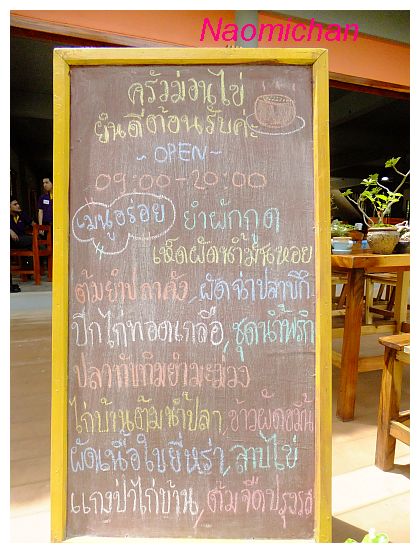 Naomichan
ครัวม่อนไข่
ยินดีต้อนรับค่ะ
~OPEN~
09:00-20:00
เมนูอร่อย ยำผักกูด
เห็ดผัดน้ำมันหอย
ต้มยำปลาคัง, ผัดฉ่าปลาบึก
ปีกไก่ทอดเกลือ, ชุดน้ำพริก
ปลาทับทิมยำมะม่วง
ไก่บ้านต้มน้ำปลา, ข้าวผัดขมิ้น
ผัดเนื้อใบยี่หร่า, ลาบไข่
แกงป่าไก่บ้าน, ต้มจืดปรุงรส